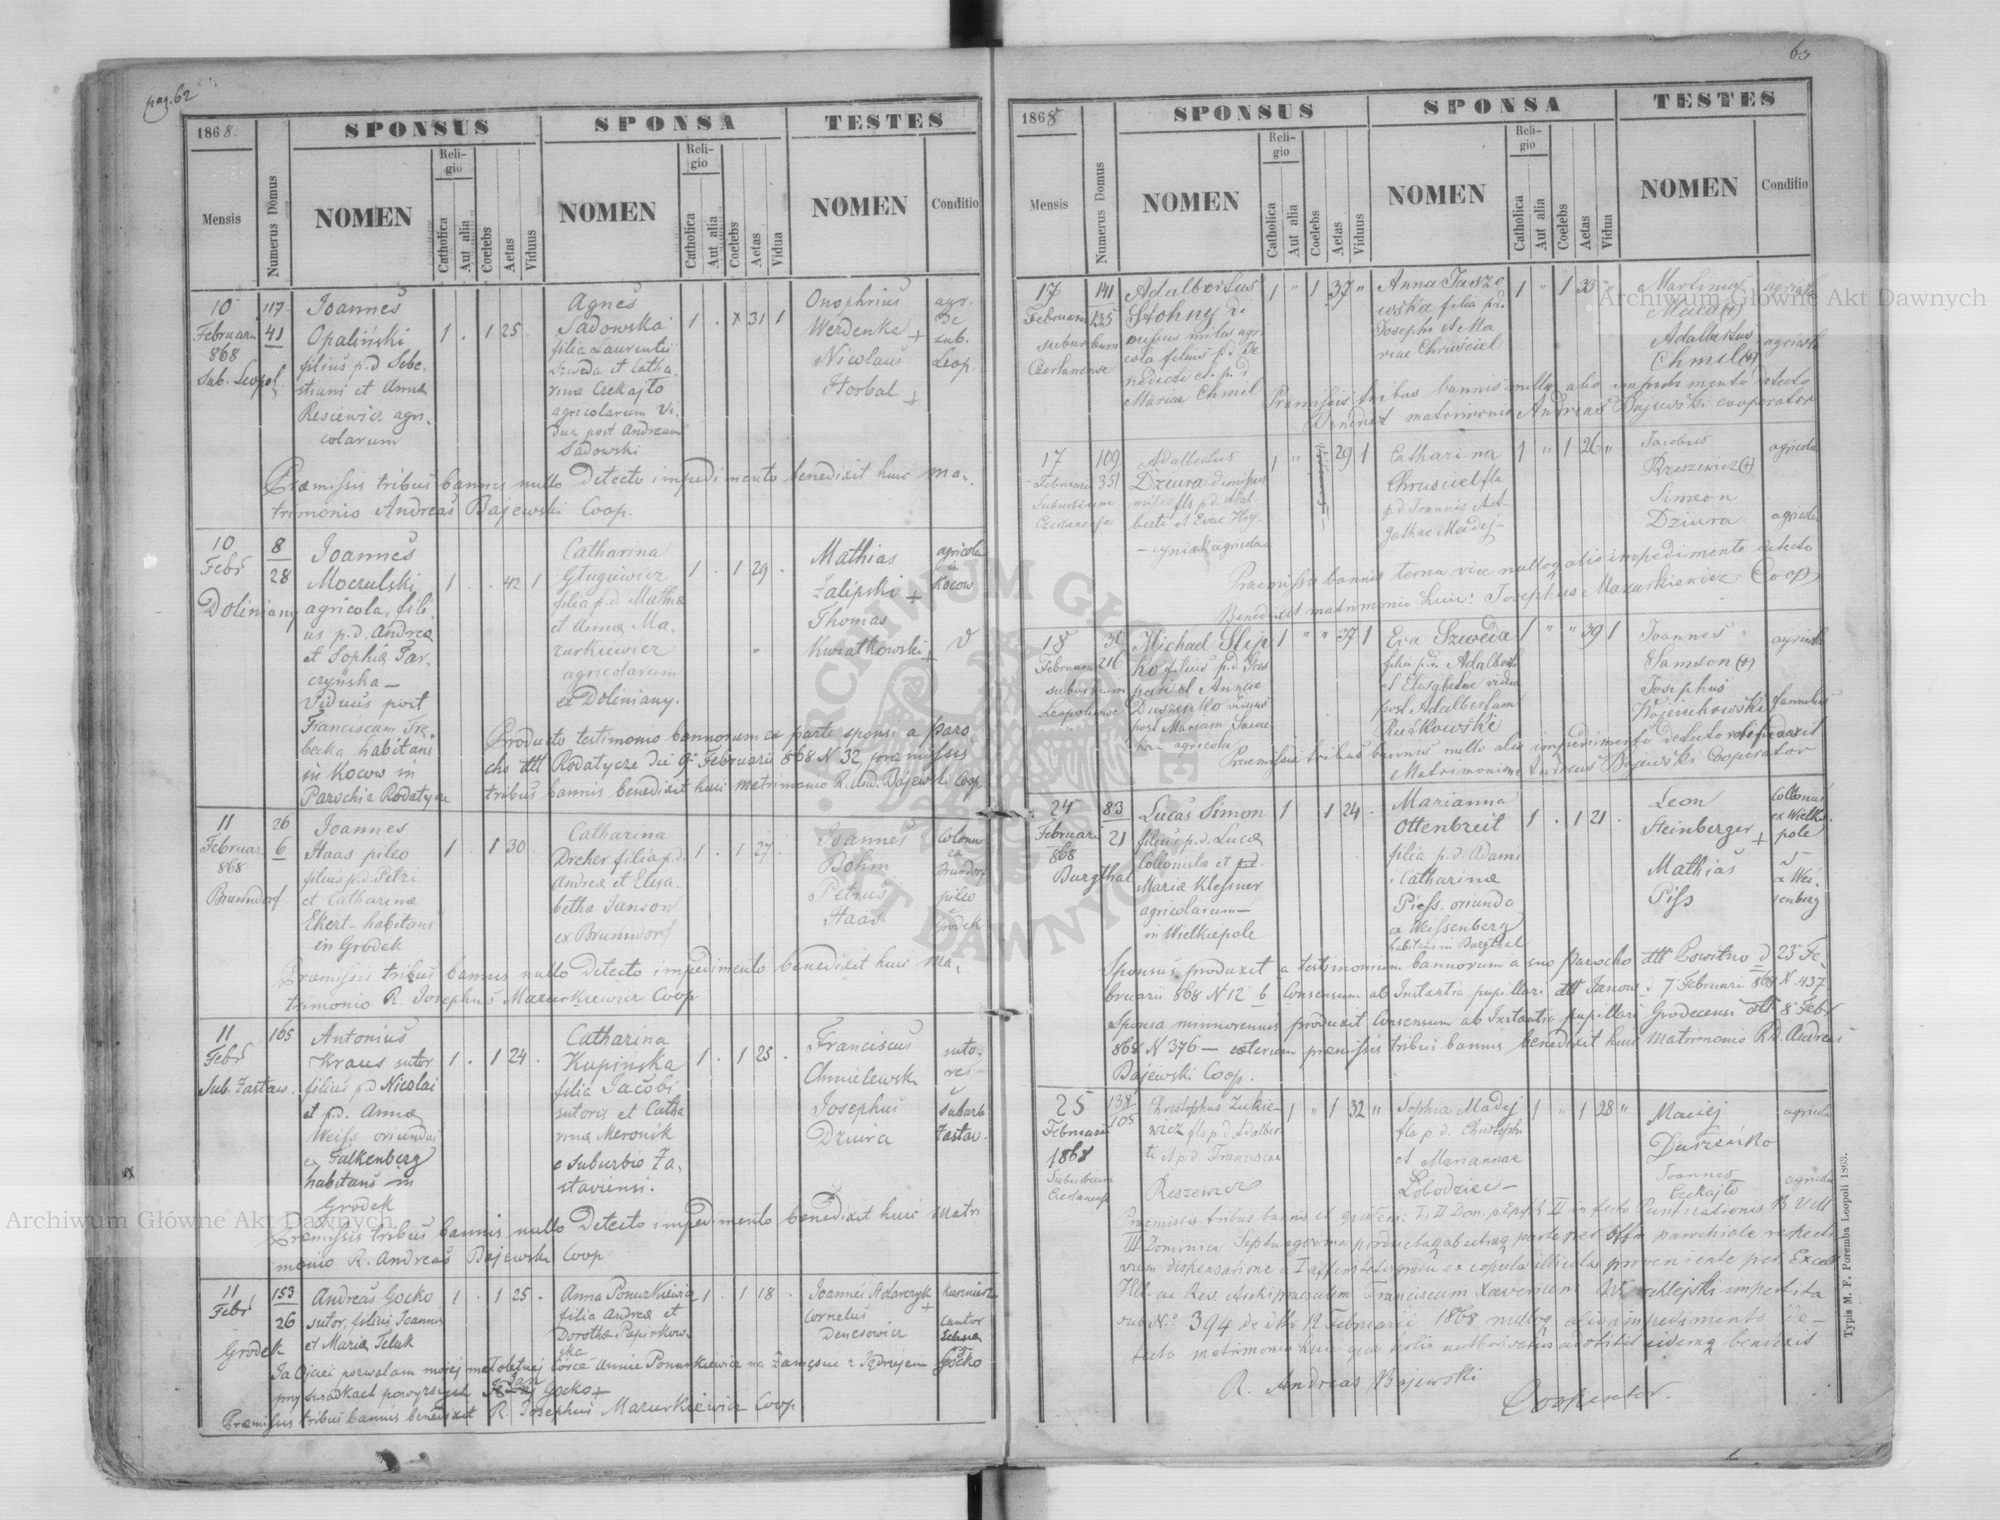 pag. 62
1868.
Mensis
Numerus Domus
SPONSUS
NOMEN
Religio
Catholica
Aut alia
Coelebs
Aetas
Viduus
SPONSA
NOMEN
Religio
Catholica
Aut alia
Coelebs
Aetas
Vidua
TESTES
NOMEN
Conditio
10
Februarii
868
Sub. Leopol.
117
41
Joannes
Opaliński
filius p.d Seba-
stiani et Annæ
Resiewicz agri-
colarum
1 . 1 25 .
Agnes
Sadowska
filia Laurentii
Szweda et Catha-
rinæ Czekajło
agricolarum Vi-
dua post Andream
Sadowski
1 . x 31 1
Onophrius
Werdenka +
Nicolaus
Horbal +
agr.
de
sub.
Leop.
Præmissis tribus bannis nullo detecto impedimento benedixit huic ma-
trimonio Andreas Bajewski Coop.
10
Febr
Doliniany
8
28
Joannes
Moczulski
agricola, fili-
us p.d. Andreæ
et Sophiæ Tar-
czyńska –
Viduus post
Franciscam Tre-
becka habitans
in Kocow in
Parochia Rodatycze
1 . . 42 1
Catharina
Gługiewicz
filia p.d. Mathiæ
et Annæ Ma-
zurkiewicz
agricolarum
ex Doliniany.
1 . 1 29 .
Mathias
Zalipski +
Thomas
Kwiatkowski +
agricola
à
Kocow
Producto testimonio bannorum ex parte sponsi a paro
cho dtt Rodatycze de 9 Februarii 868 N 32, præmissis
tribus bannis benedixit huic matrimonio R. And. Bajewski Coop
11
Februar
868
Brunndorf
26
6
Joannes
Haas pileo
filius p.d. Petri
et Catharinæ
Ekert – habitans
in Grodek
1 . 1 30 .
Catharina
Dreher filia p.d.
Andreæ et Elisa-
bethæ Janson
ex Brunndorf
1 . 1 27 .
Joannes
Böhm
Petrus
Haas
Colonus
ex
Brundorf
pileo
Grodek
Præmissis tribus bannis nullo detecto impedimento benedixit huic ma-
trimonio R. Josephus Mazurkiewicz Coop
11
Febr
Sub. Zastaw.
165
Antonius
Kraus sutor
filius p.d Nicolai
et p.d. Annæ
Weiss oriundus
ex Falkenberg
habitans in
Grodek
1 . 1 24 .
Catharina
Kupińska
filia Jacobi
sutoris et Catha
rinæ Meronik
e suburbio Za-
staviensi.
1 . 1 25 .
Franciscus
Chmielewski
Josephus
Dziura
suto-
res
suburb
Zastav.
Præmissis tribus bannis nullo detecto impedimento benedixit huic matri
monio R. Andreas Bajewski Coop
11
Febr
Grodek
153
26
Andreas Gocko
sutor, filius Joannis
et Mariæ Teluk
1 . 1 25 .
Anna Ponurkiewicz
filia Andreæ et
Dorotheæ Papirkow-
ska
1 . 1 18 .
Joannes Stolarczyk +
Cornelius
Denesowicz
Kusnierz
Cantor
Ja Ojciec pozwalam mojej małoletniej córce Annie Ponurkiewicz na zamęscie z Jędrzejem Gocko
przy swiadkach powyrszych Jan Gocko +
Præmissis tribus bannis benedixit R. Josephus Mazurkiewicz Coop.
63
1868
Mensis
Numerus Domus
SPONSUS
NOMEN
Religio
Catholica
Aut alia
Coelebs
Aetas
Viduus
SPONSA
NOMEN
Religio
Catholica
Aut alia
Coelebs
Aetas
Vidua
TESTES
NOMEN
Conditio
17
Februarii
suburbium
Czerlanense
141
135
Adalbertus
Stohny di
missus miles agri
cola filius p.d. Be
nedicti et p.d
Mariæ Chmil
1 " 1 37 "
Anna Juszo
wska filia p.d.
Josephi et Ma
riae Chruściel
1 " 1 33 "
Martinus
Maed (+)
Adalbertus
Chmil (+)
agricola
agricola
Præmissis tribus bannis nulloq alio impedimento detecto
Benedixit matrimonio Andreas Bajewski cooperator
17
Februarii
Suburbium
Czerlanense
109
351
Adalbertus
Dziura dimissus
miles fls p.d. Adal-
berti et Evae Hry-
cyniak agricola
1 " 29 1
Catharina
Chrusciel fla
p.d. Joannis et A-
gathae Madej –
1 " 1 26 "
Jacobus
Rzeszewicz (+)
Simeon
Dziura
agricola
agricola
Praemissis bannis terna vice nulloq alio impedimento detecto
Benedixit matrimonio huic: Josephus Mazurkiewicz Coop
18
Februarii
suburbium
Leopoliense
36
216
Michael Slip
ko filius p.d. Gas
pari et Annae
Duszeńko viduus
post Mariam
agricola
1 " " 37 1
Eva Szweda
filia p.d. Adalberti
et Elisabethae vidua
post Adalbertum
Rutkowski
1 " " 39 1
Joannes
Samson (+)
Josephus
Wojciechowski
agricola
famulus
Praemissis tribus bannis nullo alio impedimento detecto
Matrimonium Andreas Bajewski Cooperator
24
Februarii
868
Burgthal
83
21
Lucas Simon
filius p.d. Lucæ
Collonistæ et p.d.
Mariæ Klessner
agricolarum –
in Wielkiepole
1 1 24 .
Marianna
Ottenbreit
filia p.d. Adami
et Catharinæ
Piess. oriunda
ex Weissenberg
habitans in Burgthal
1 . 1 21 .
Leon
Steinberger +
Mathias
Piss
Collonus
ex Wielko
pole
à Wei-
senberg
Sponsus produxit a testimonium bannorum a suo Parocho dtt Powitno d 23 Fe-
bruarii 868 N 12 b Consensum ab Instantia pupillari dtt Janow d 7 Februari 868 N 437
Sponsa minnorennis produxit Consensum ab Instantia pupillari Grodecensi dtt 8 Febr
868 N 376 – ceterum præmissis tribus bannis benedixit huic Matrimonio Rd. Andreas
Bajewski Coop.
25
Februarii
1868
Suburbium
Czerlanense
138
105
Christophus Zukie-
wicz fls p d Adalber-
ti et p.d. Franciscae
Reszewicz
1 " 1 32 "
Sophia Madej
fla p.d. Christophi
et Mariannae
Lobodziec –
1 " 1 28 "
Maciej
Duszeńko
Joannes
Czekajło
agricola
agricola
Praemissis tribus bannis et quidem: I, II Dom. p Epiph. II in festo Purificationis B. V M
III Dominica Septuagesima productaq ab utraq parte per offm parochiale respecti
vum dispensatione a I affinitatis gradu ex copula illicita proveniente per Excell
Ill. ac Rev. Archipraesulem Franciscum Xaverium Wierzchlejski impertita
sub No 394 de dto 12 Februarii 1868 nulloq alio impedimento de-
tecto matrimonio huic benedixit
R. Andreas Bajewski
Cooperator.
Typis M. F. Poremba Leopoli 1863.
Archiwum Główne Akt Dawnych
Archiwum Główne Akt Dawnych
ARCHIWUM GŁÓWNE
AKT DAWNYCH